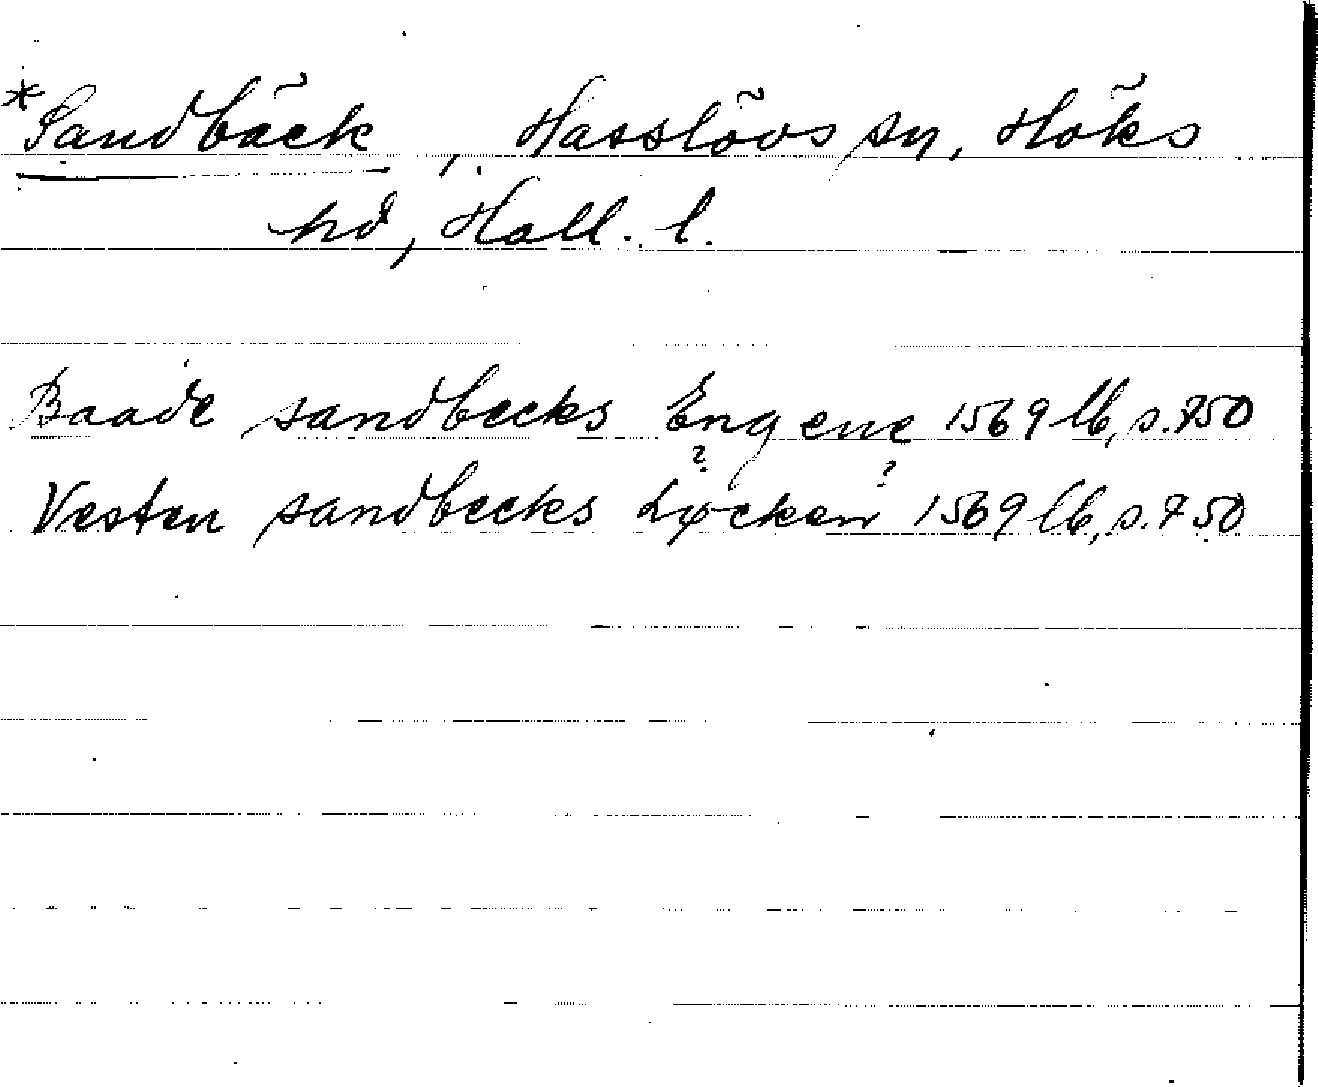 *Sandbäck, Hasslövs sn, Höks
hd, Hall. l.
Baade sandbecks Engene 1569 lb, s. 750
Vesten sandbecks Løcken 1569 lb, s. 750